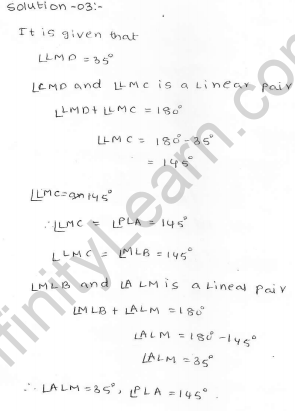 Solution -03:-
It is given that
∠LMD = 35°
∠CMD and ∠LMC is a Linear Pair
∠LMD + ∠LMC = 180°
∠LMC = 180° - 35°
= 145°
∠LMC = 145°
∴ ∠LMC = ∠PLA = 145°
∠LMC = ∠MLB = 145°
∠MLB and ∠ALM is a Lineal Pair
∠MLB + ∠ALM = 180°
∠ALM = 180° - 145°
∠ALM = 35°
∴ ∠ALM = 35°, ∠PLA = 145°.
finityLearn.com